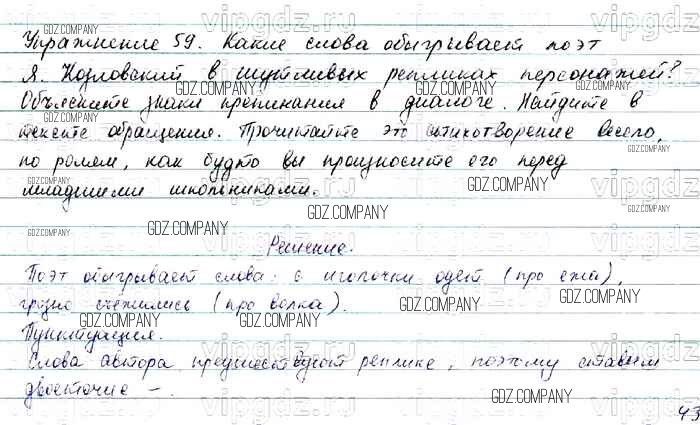 Упражнение 59. Какие слова обыгрывает поэт
Я. Козловский в шутливых репликах персонажей?
Объясните знаки препинания в диалоге. Найдите в
тексте обращения. Прочитайте это стихотворение весело,
по ролям, как будто вы произносите его перед
младшими школьниками.
Решение.
Поэт обыгрывает слова: с иголочки одет (про ежа),
грозно съежились (про волка).
Пунктуация.
Слова автора предшествуют реплике, поэтому ставим
двоеточие –.
43
GDZ.COMPANY
vipgdz.ru